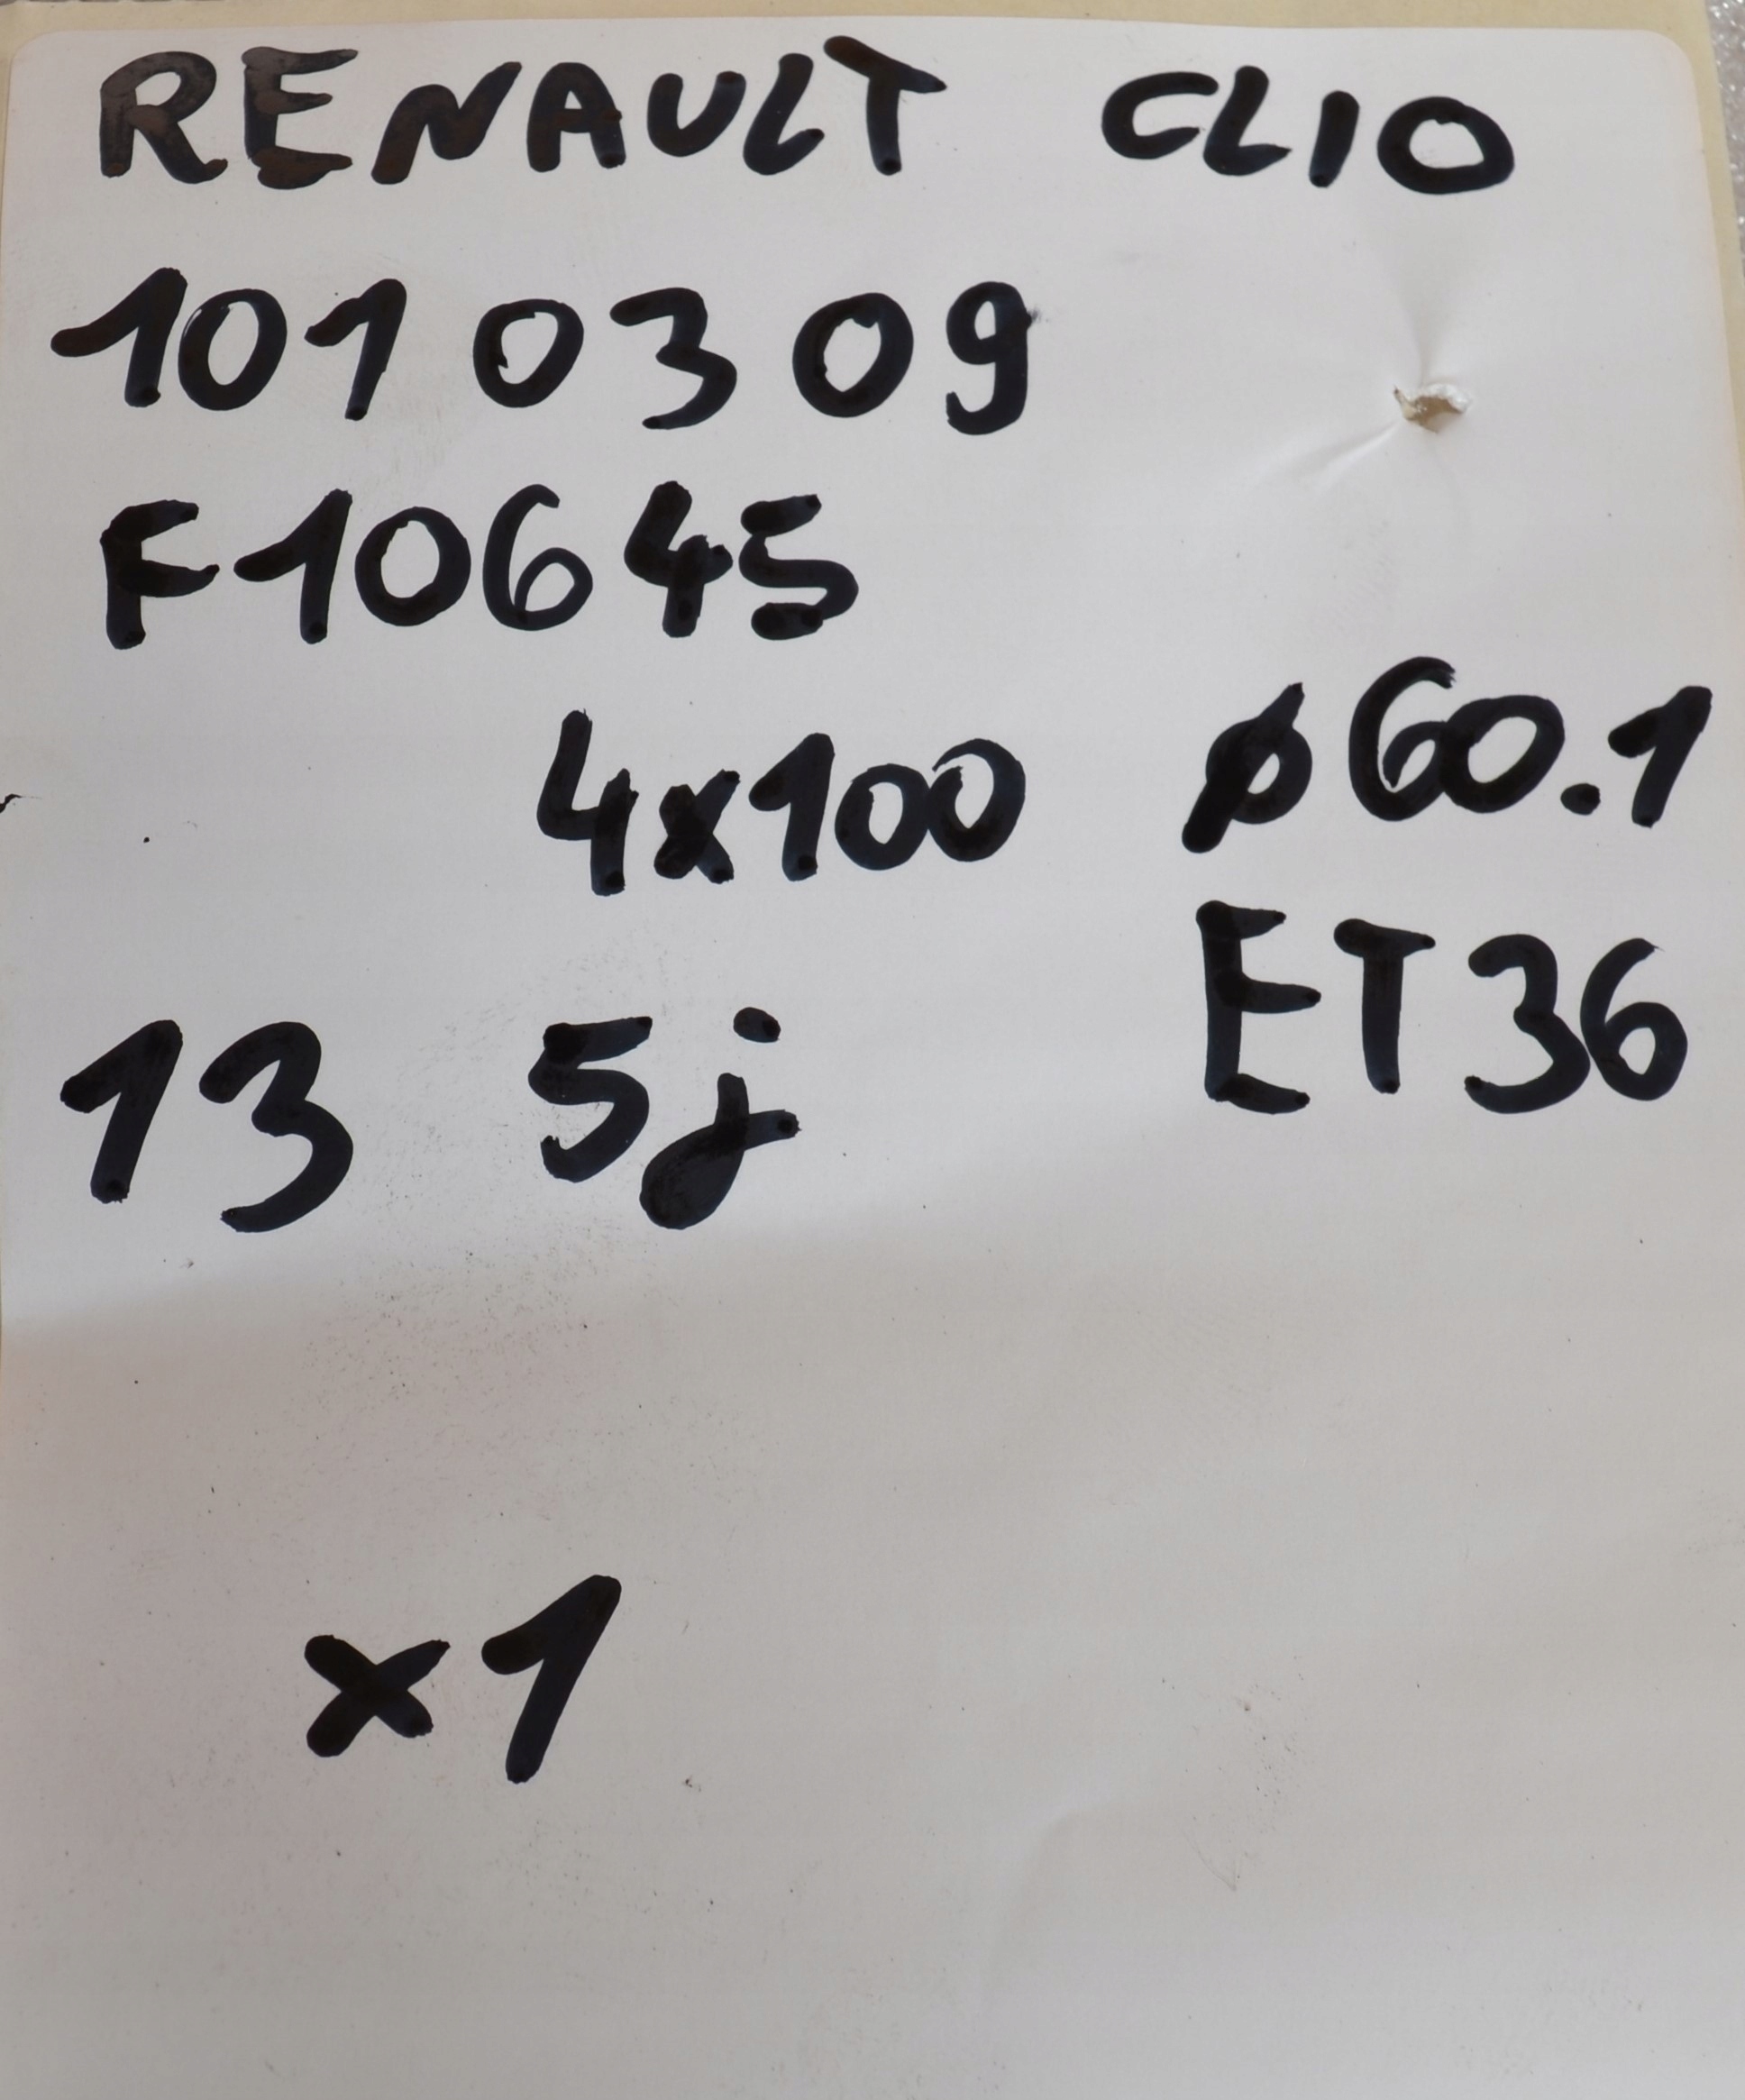 RENAULT CLIO
1010309
F10645
4x100 ø60.1
ET36
13 5j
x1